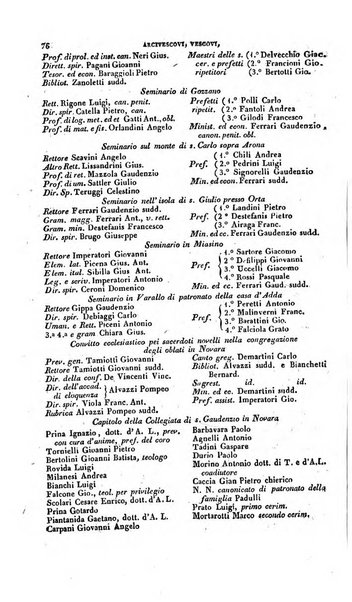 76 ARCIVESCOVI, VESCOVI,
Prof. di prol. ed inst. can. Neri Gius.
Dirett. spir. Pagani Gioanni
Tesor. ed econ. Baraggioli Pietro
Bibliot. Zanoletti sudd.
Maestri delle s. (1.º Delvecchio Giac
cer. e prefetti (2.º Francioni Gio.
ripetitori (3.º Bertotti Gio.
Seminario di Gozzano
Rett. Rigone Luigi, can. penit.
Dir. sp. Catella Pietro
Prof. di log. met. ed et Gatti Ant., obl.
Prof. di mat. e fis. Orlandini Angelo
Prefetti (1.º Polli Carlo
ripetitori (2.º Fontana Andrea
(3.º Gilodi Francesco
Minist. ed econ. Ferrari Gaudenzio
Seminario sul monte di s. Carlo sopra Arona
Rettore Seavini Angelo
Altro Rett. Lissandrini Gius.
Prof. di ret. Mazzola Gaudenzi
Prof. di um. Sattler Giulio
Dir. Sp. Teruggi Celestino
Pref. (1.º Chili Andrea
(2.º Pedrini Luigi
(3.º Signorelli Gaudenzio
Min. ed econ. Ferrari sudd.
Seminario nell' isola di s. Giulio presso Orta
Rettore Ferrari Gaudenzio sudd.
Gram. magg. Ferrari Ant., v. rett.
Gram. min. Destefanis Francesco
Dir. spir. Brugo Giuseppe
Pref. (1.º Landini Pietro
(2.º Destefanis Pietro
(3.º Airaga Franc.
Min. ed econ. Ferrari sudd.
Seminario in Miasino
Rettore Imperatori Giovanni
Elem. lat. Picena Gius. Ant.
Elem. ital. Sibilla Gius Ant.
Leg. e scriv. Imperatori Antonio
Dir. spir. Ceroni Domenico
Pref. 1.º Sartore Giacomo
2.º Defilippi Giovanni
3.º Uccelli Giacomo
4.º Rossi Pasquale
Min. ed. ec. Ferrari Gaudenzio sudd.
Seminario in Varallo di patronato della casa d'Adda
Rettore Gippa Gaudenzio
Dir. spir. Debiaggi Carlo
Uman. e Rett. Piceni Antonio
3.ª 4.ª e gram Chiara Gius.
Pref. 1.º Peretti Antonio
2.º Malinverni Franc.
3.º Barattini Gio.
4.º Falciola Grato
Convitto ecclesiastico pei sacerdoti novelli nella congregazione
degli oblati in Novara
Prev. gen. Tamiotti Giovanni
Rettore Tamiotti Giovanni sudd.
Dir. della conf. De Vincenti Vinc.
Dir. dell'accad. } Alvazzi Pompeo
di eloquenza
Dir. spir. Viola Franc. Ant.
Rubrica Alvazzi Pompeo sudd.
Canto greg. Demartini Carlo
Bibliot. Alvazzi sudd. e Bianchetti
Bernard.
Sagrest. id. id.
Min. ed ec. Demartini sudd.
Pref. assist. Imperatori Gio.
Capitolo della Collegiata di s. Gaudenzio in Novara
Prina Ignazio, dott. d'A. L., prev.
con cura d'anime, pref. del coro
Tornielli Gioanni Pietro
Bertolini Gioanni Batista, teologo
Rovida Luigi
Milanesi Andrea
Bianchi Luigi
Falcone Gio., teol. per privilegio
Scolari Cesare Enrico, dott. d'A. L.
Prina Gotardo
Piantanida Gaetano, dott. d'A. L.
Carpani Giovanni Angelo
Barbavara Paolo
Agnelli Antonio
Tadini Gaspare
Durio Paolo
Morino Antonio dott. di T. e d'A. L.
coadiutore
Caccia Gian Pietro chierico
N. N. canonicato di patronato della
famiglia Padulli
Prato Luigi, primo cerim.
Mortarotti Marco secondo cerim.